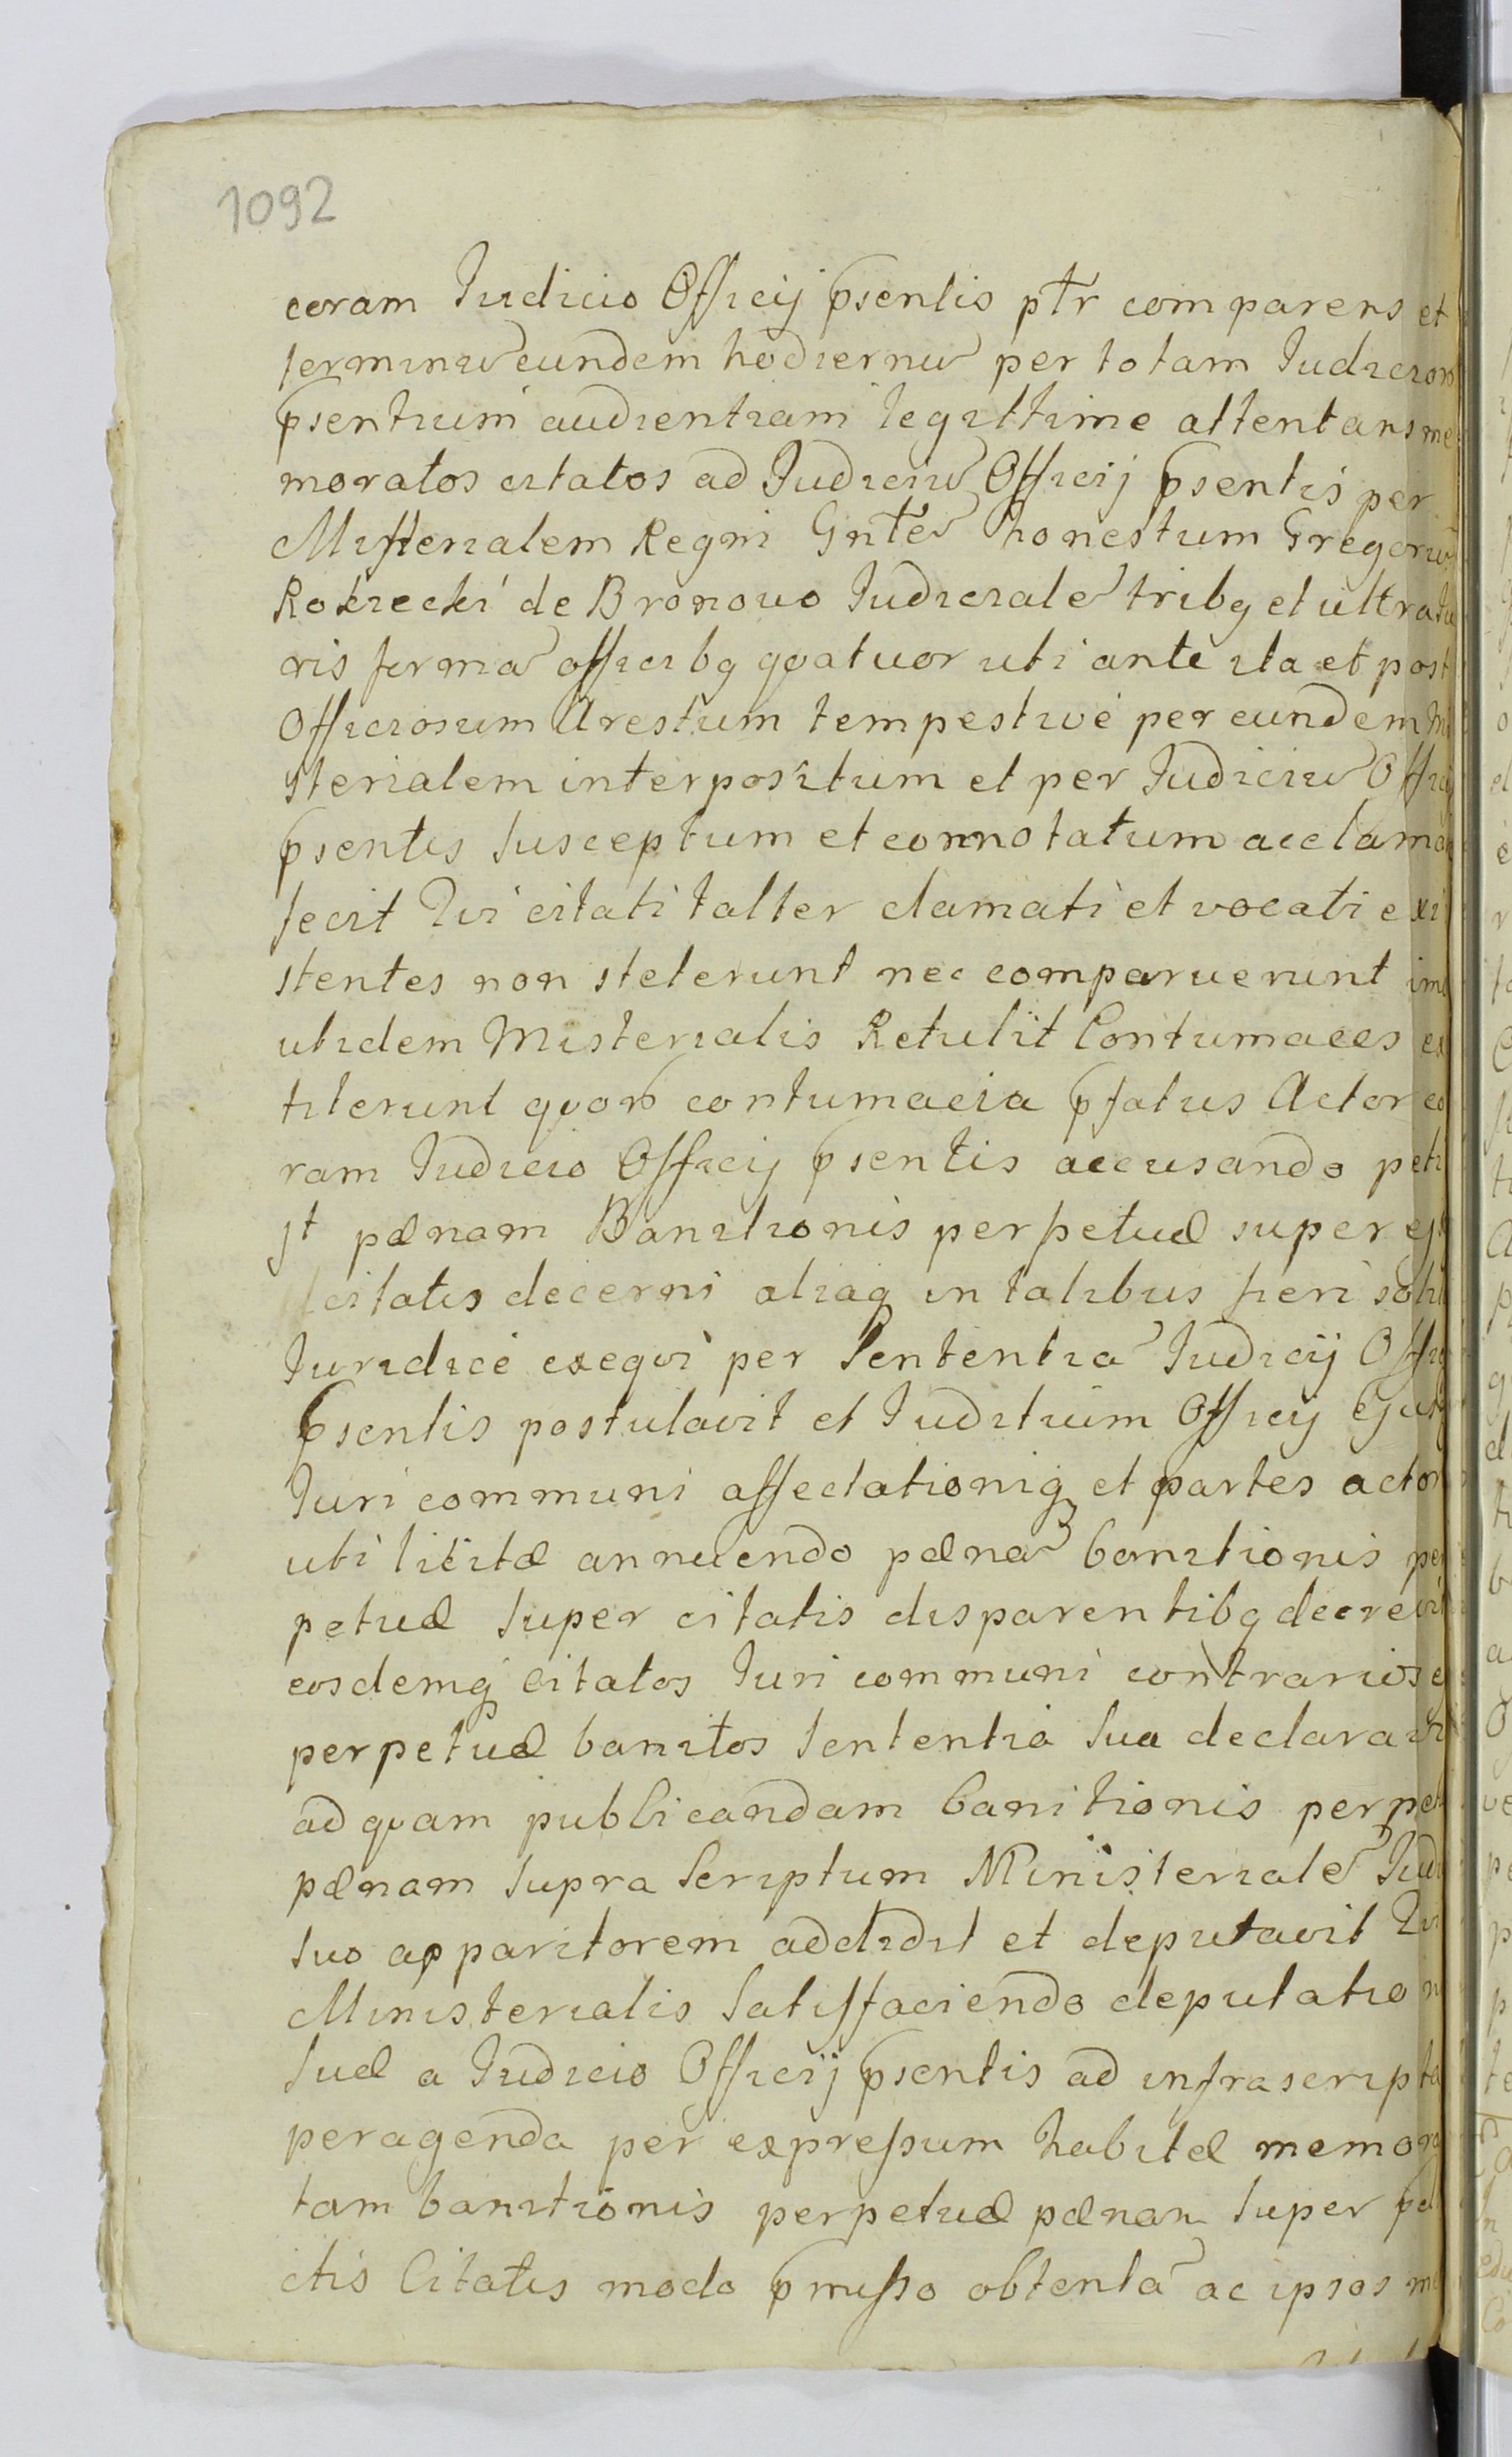 1092
coram Iudicio Officij p̄sentis ptr comparens et
terminū eundem hodiernū per totam Iudicior
p̄sentium audientiam legittime attentans me
moratos citatos ad Iudiciū Officij p̄sentis per
Misterialem Regni Gnte honestum Gregoriū
Rokicki de Bronowo Iudicialē tribq et ultra Iu
ris formā officibq qvatuor uti ante ita et post
Officiosum Arestum tempestivè per eundem Mi
sterialem interpositum et per Iudiciū Offici
p̄sentis susceptum et connotatum acclamar
fecit Qvi citati talter clamati et vocati exi
stentes non steterunt nec comparuerunt imo
utidem Misterialis Retulit Contumaces ex
titerunt qvor contumacia p̄fatus Actor co
ram Iudicio Officij p̄sentis accusando peti
jt pænam Banitionis perpetuæ super
citatis decerni aliaq in talibus fieri solit
Iuridicè exeqvi per Sententiā Iudicij Offi
p̄sentis postulavit et Iuditium Officij
Iuri communi affectationiq et partes actor
uti licitæ annuendo pænā banitionis per
petuæ super citatis disparentibq decrevit
eosdemq citatos Iuri communi contrarios e
perpetuæ banitos sententia sua declaravit
ad qvam publicandam banitionis perpet
pænam supra scriptum Ministerialē Iudi
suo apparitorem addidit et deputavit Qvi
Ministerialis satisfaciendo deputation
suæ a Iudicio Officij p̄sentis ad infrascripta
peragenda per expressum habitæ memora
tam banitionis perpetuæ pænam super p̄di
ctis Citatis modo p̄misso obtentā ac ipsos m